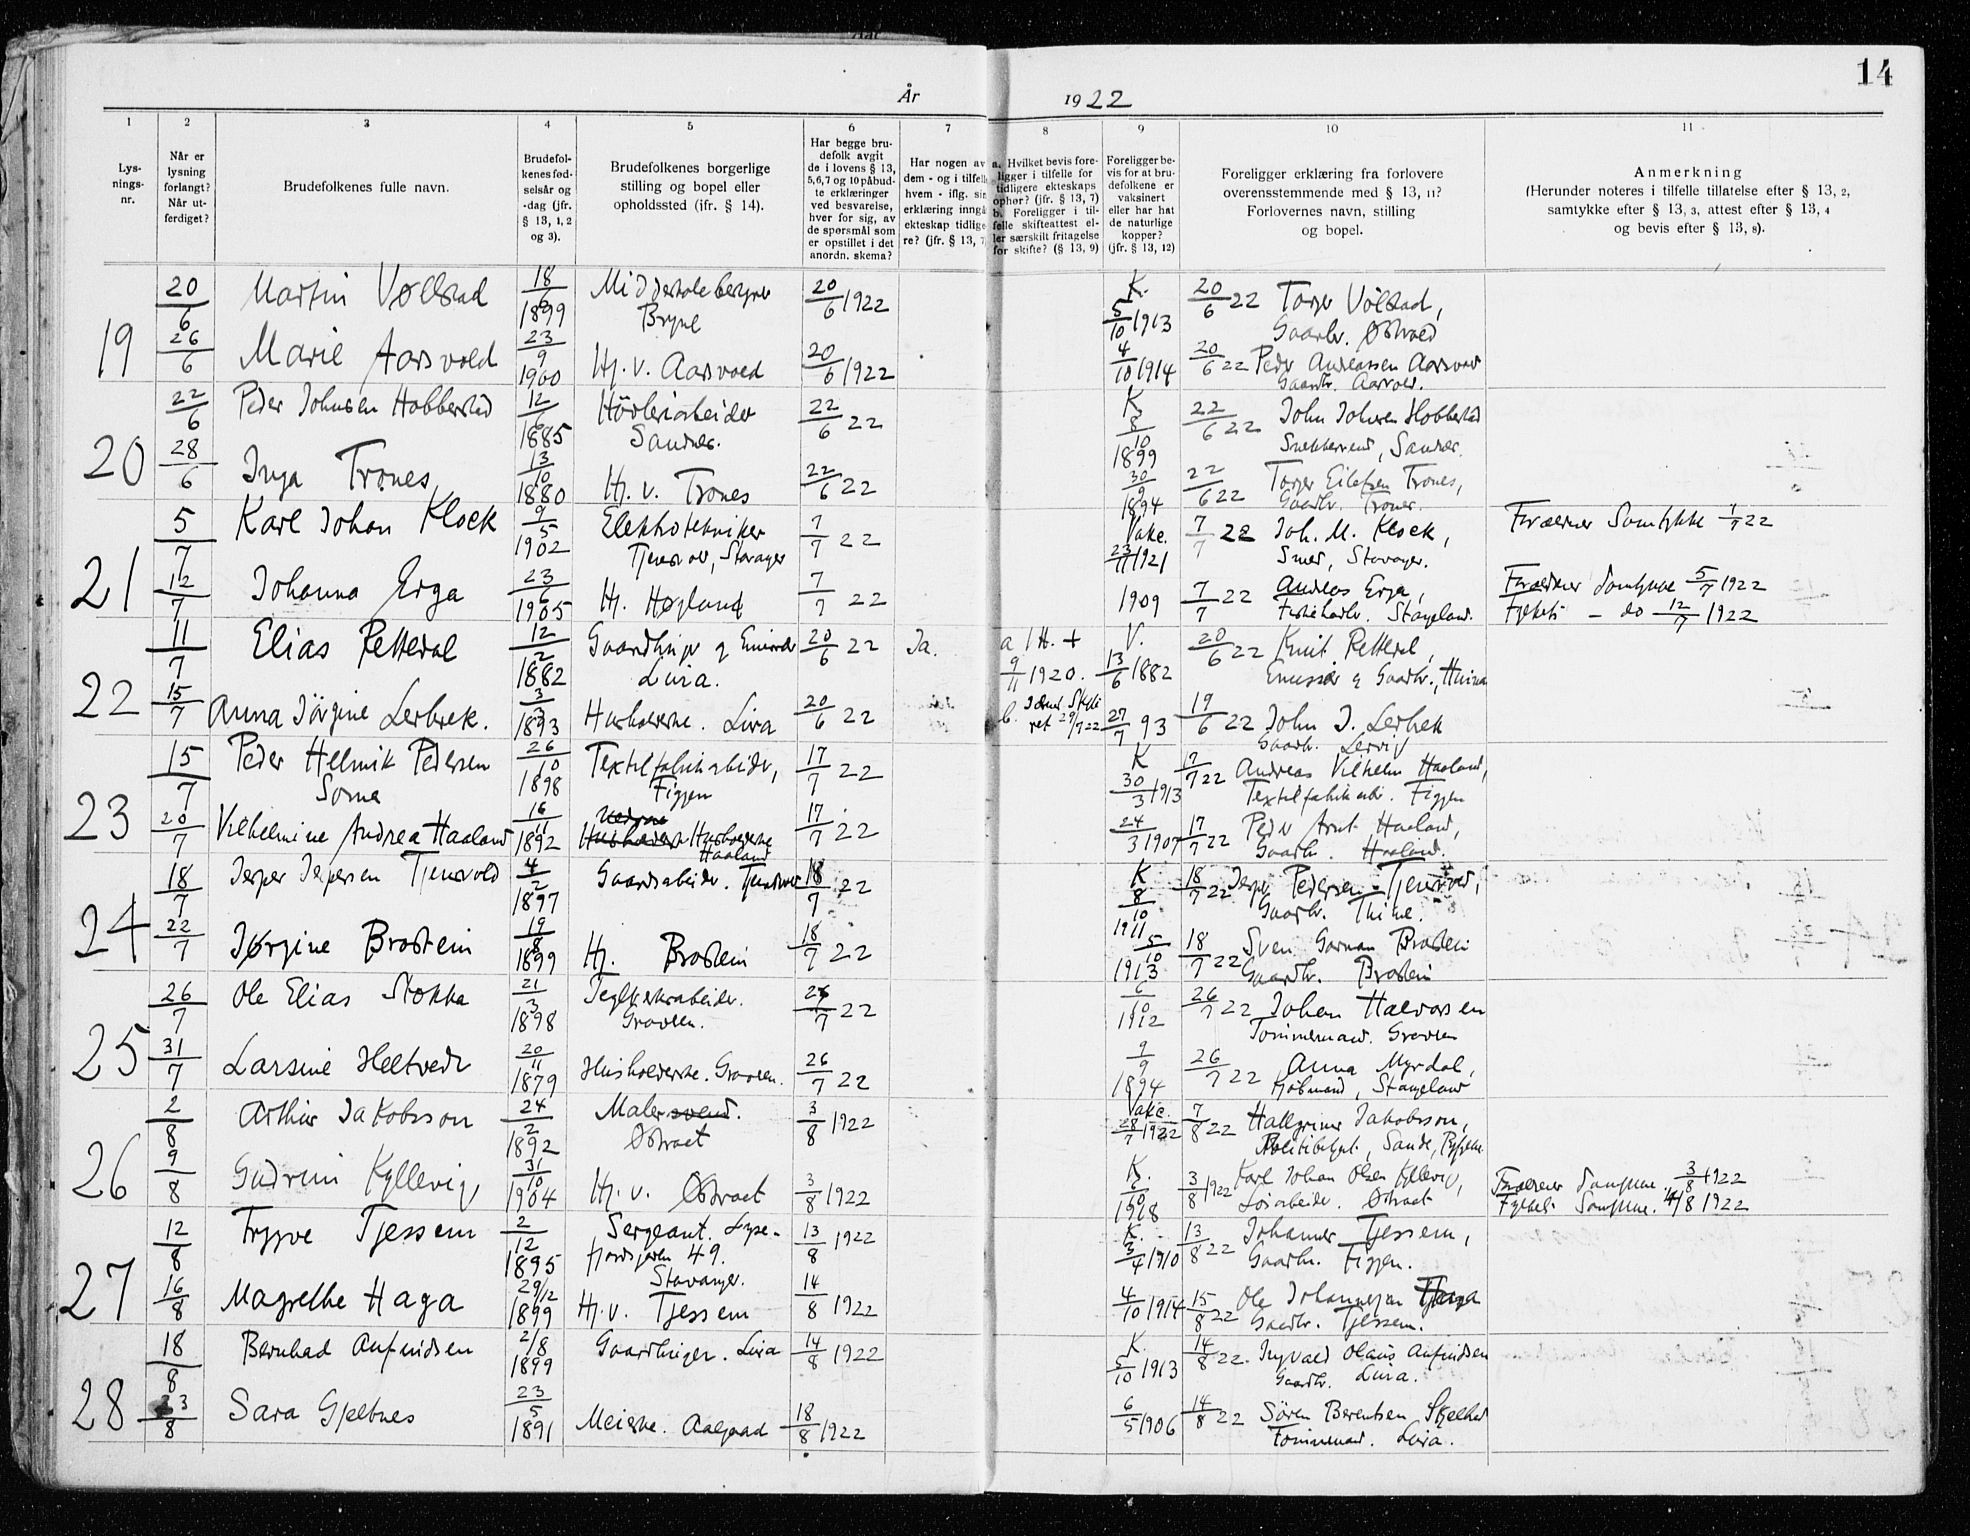 14
År 1922
1 2 3 4 5 6 7 8 9 10 11
Lys-
nings-
nr.
Når er
lysning
forlangt?
Når ut-
ferdiget?
Brudefolkenes fulle navn.
Brudefol-
kenes fød-
selsår og
-dag (jfr.
§ 13, 1, 2
og 3).
Brudefolkenes borgerlige
stilling og bopel eller
opholdssted (jfr. § 14).
Har begge bru-
defolk avgit
de i lovens § 13,
5, 6, 7 og 10 påbud-
te erklæringer
ved besvarelse,
hver for sig, av
de spørsmål som
er opstillet i det
anordn. skema?
Har nogen av
dem - og i tilfelle
hvem - iflg. sin
erklæring inngå
ekteskap tidlige
re? (jfr. § 13, 7
a. Hvilket bevis fore-
ligger i tilfelle for
tidligere ekteskaps
ophør? (jfr. § 13, 7)
b. Foreligger i til-
felle skifteattest el-
ler særskilt fritagelse
for skifte? (§ 13, 9)
Foreligger be-
vis for at bru-
defolkene er
vaksinert
eller har hat
de naturlige
kopper?
(jfr. § 13, 12)
Foreligger erklæring fra forlovere
overensstemmende med § 13, 11?
Forlovernes navn, stilling
og bopel.
Anmerkning
(Herunder noteres i tilfelle tillatelse efter § 13, 2,
samtykke efter § 13, 3, attest efter § 13, 4
og bevis efter § 13, 8).
19
20/6 Martin Vølstad 18/6 1899 Bryne 20/6 1922 K. 5/10 1913 20/6 22 Torger Vølstad,
Gaardbr.
26/6 Marie Aarsvold 23/9 1900 Hj. v. Aarsvold 20/6 1922 4/10 1914 20/6 22 Peder Andreassen Aarsvold
Gaardbr. Aarsvold.
20
22/6 Peder Johnsen Hobberstad 12/6 1885 Høvleriarbeider
Sandnes. 22/6 22 K. 8/10 1899 22/6 22 John Johnsen Hobberstad
Sandnes.
28/6 Inga Trones 13/10 1880 Hj. v. Trones 22/6 22 30/9 1894 22/6 22 Torger Eilefsen Trones,
Gaardbr. Trones.
21
5/7 Karl Johan Klock 9/5 1902 Elektrotekniker
Tjensvold, Stavanger 7/7 22 Vakc. 23/11 1921 7/7 22 Joh. M. Klock,
Smed, Stavanger. Forældrer Samtykke 7/7 22
12/7 Johanna Erga 23/6 1905 Hj. Høyland 7/7 22 1909 7/7 22 Andreas Erga,
Fiskehandler. Stangeland. Forældrer Samtykke 5/7 1922
Fylkets - do 12/7 1922
22
11/7 Elias Rettedal 12/2 1882 Gaardbruger & Emissær
Lura. 20/6 22 Ja. a 1 H. + 9/11 1920. V. 13/6 1882 20/6 22 Knut Rettedal,
Emissær & Gaardbr.,
15/7 Anna Jørgine Lerbrek. 3/3 1893 Husholderske. Lura 20/6 22 b. 29/7 22 27/7 93 19/6 22 John J. Lerbrek
Gaardbr. Lervig
23
15/7 Peder Helmik Pedersen
Soma 26/10 1898 Textilfabrikarbeider,
Figgen 17/7 22 K 30/3 1913 7/7 22 Andreas Vilhelm Haaland,
Textilfabrikarb. Figgen
20/7 Vilhelmine Andrea Haaland 16/11 1892 Husholderske
Haaland 17/7 22 24/3 1907 17/7 22 Peder Arnt Haaland,
Gaardbr. Haaland.
24
18/7 Jesper Jespersen Tjensvold 4/2 1897 Gaardsarbeider. Tjensvold 18/7 22 K 8/10 1911 18/7 22 Jesper Pedersen Tjensvold,
Gaardbr. Thime.
22/7 Jørgine Brostein 19/8 1899 Hj. Brostein 18/7 22 5/10 1913 18/7 22 Sven Gorman Brostein
Gaardbr. Brostein
25
26/7 Ole Elias Stokka 21/3 1898 Teglverksarbeider.
Graveren. 26/7 22 6/10 1912 26/7 22 Johan Halvorsen
Tømmermand. Graveren
31/7 Larsine Heltvedt 20/11 1879 Husholderske. Graveren. 26/7 22 9/9 1894 26/7 22 Anna Myrdal,
Kjøbmand, Stangeland
26
2/8 Arthur Jakobsson 24/2 1892 Malersvend.
Østraat 3/8 1922 Vakc. 28/7 1922 7/8 22 Hallgrimur Jakobsson,
Politibetjent, Sande,
9/8 Gudrun Kyllevig 31/10 1904 Hj. v. Østraat 3/8 1922 K. 6/10 1918 3/8 1922 Karl Johan Olsen Kyllevig,
Østraat Forældrer Samtykke. 3/8 1922
Fylkets Samtykke. 14/8 1922
27
12/8 Trygve Tjessem 2/12 1895 Sergeant. Lyse-
fjordsgaten 49.
Stavanger. 13/8 1922 K. 3/4 1910 13/8 22 Johannes Tjessem,
Gaardbr. Figgen.
16/8 Magrethe Haga 29/12 1899 Hj. v. Tjessem 14/8 1922 4/10 1914 15/8 22 Ole Johannesen Haga
Gaardbr. Tjessem.
28
18/8 Bernhad Anfindsen 2/8 1899 Gaardbruger. Lura 14/8 1922 K. 5/10 1913 14/8 22. Ingvald Olaus Anfindsen
Gaardbr. Lura.
23/8 Sara Gjeltnes 23/5 1891 Meierske. Aalgaard 18/8 1922 6/5 1906 14/8 22 Søren Berentsen
Tømmermand. Lura.